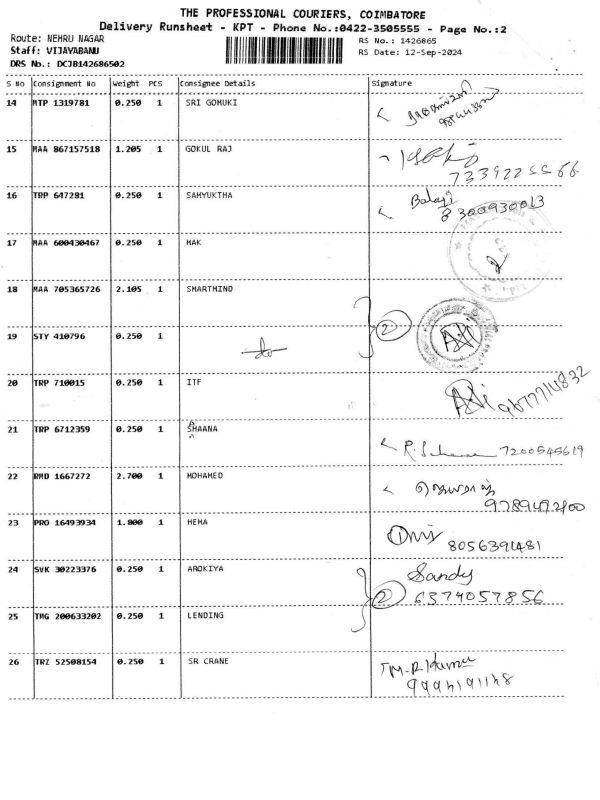 THE PROFESSIONAL COURIERS, COIMBATORE
Delivery Runsheet - KPT - Phone No.:0422-3505555 - Page No.:2
Route: NEHRU NAGAR RS No.: 1426865
Staff: VIJAYABANU RS Date: 12-Sep-2024
DRS No.: DCJB142686502
S No Consignment No Weight PCS Consignee Details Signature
14 MTP 1319781 0.250 1 SRI GOMUKI
15 MAA 867157518 1.205 1 GOKUL RAJ
7339225566
16 TRP 647281 0.250 1 SAMYUKTHA Balaji
8300930013
17 MAA 600430467 0.250 1 MAK
18 MAA 705365726 2.105 1 SMARTHIND
2
19 STY 410796 0.250 1
do
20 TRP 710015 0.250 1 ITF
9677714832
21 TRP 6712359 0.250 1 SHAANA
7200545619
22 RMD 1667272 2.700 1 MOHAMED
9789492100
23 PRO 16493934 1.800 1 HEMA
8056391481
24 SVK 30223376 0.250 1 AROKIYA Sandy
2 6374057856
25 TMG 200633202 0.250 1 LENDING
26 TRZ 52508154 0.250 1 SR CRANE M.R. Kumar